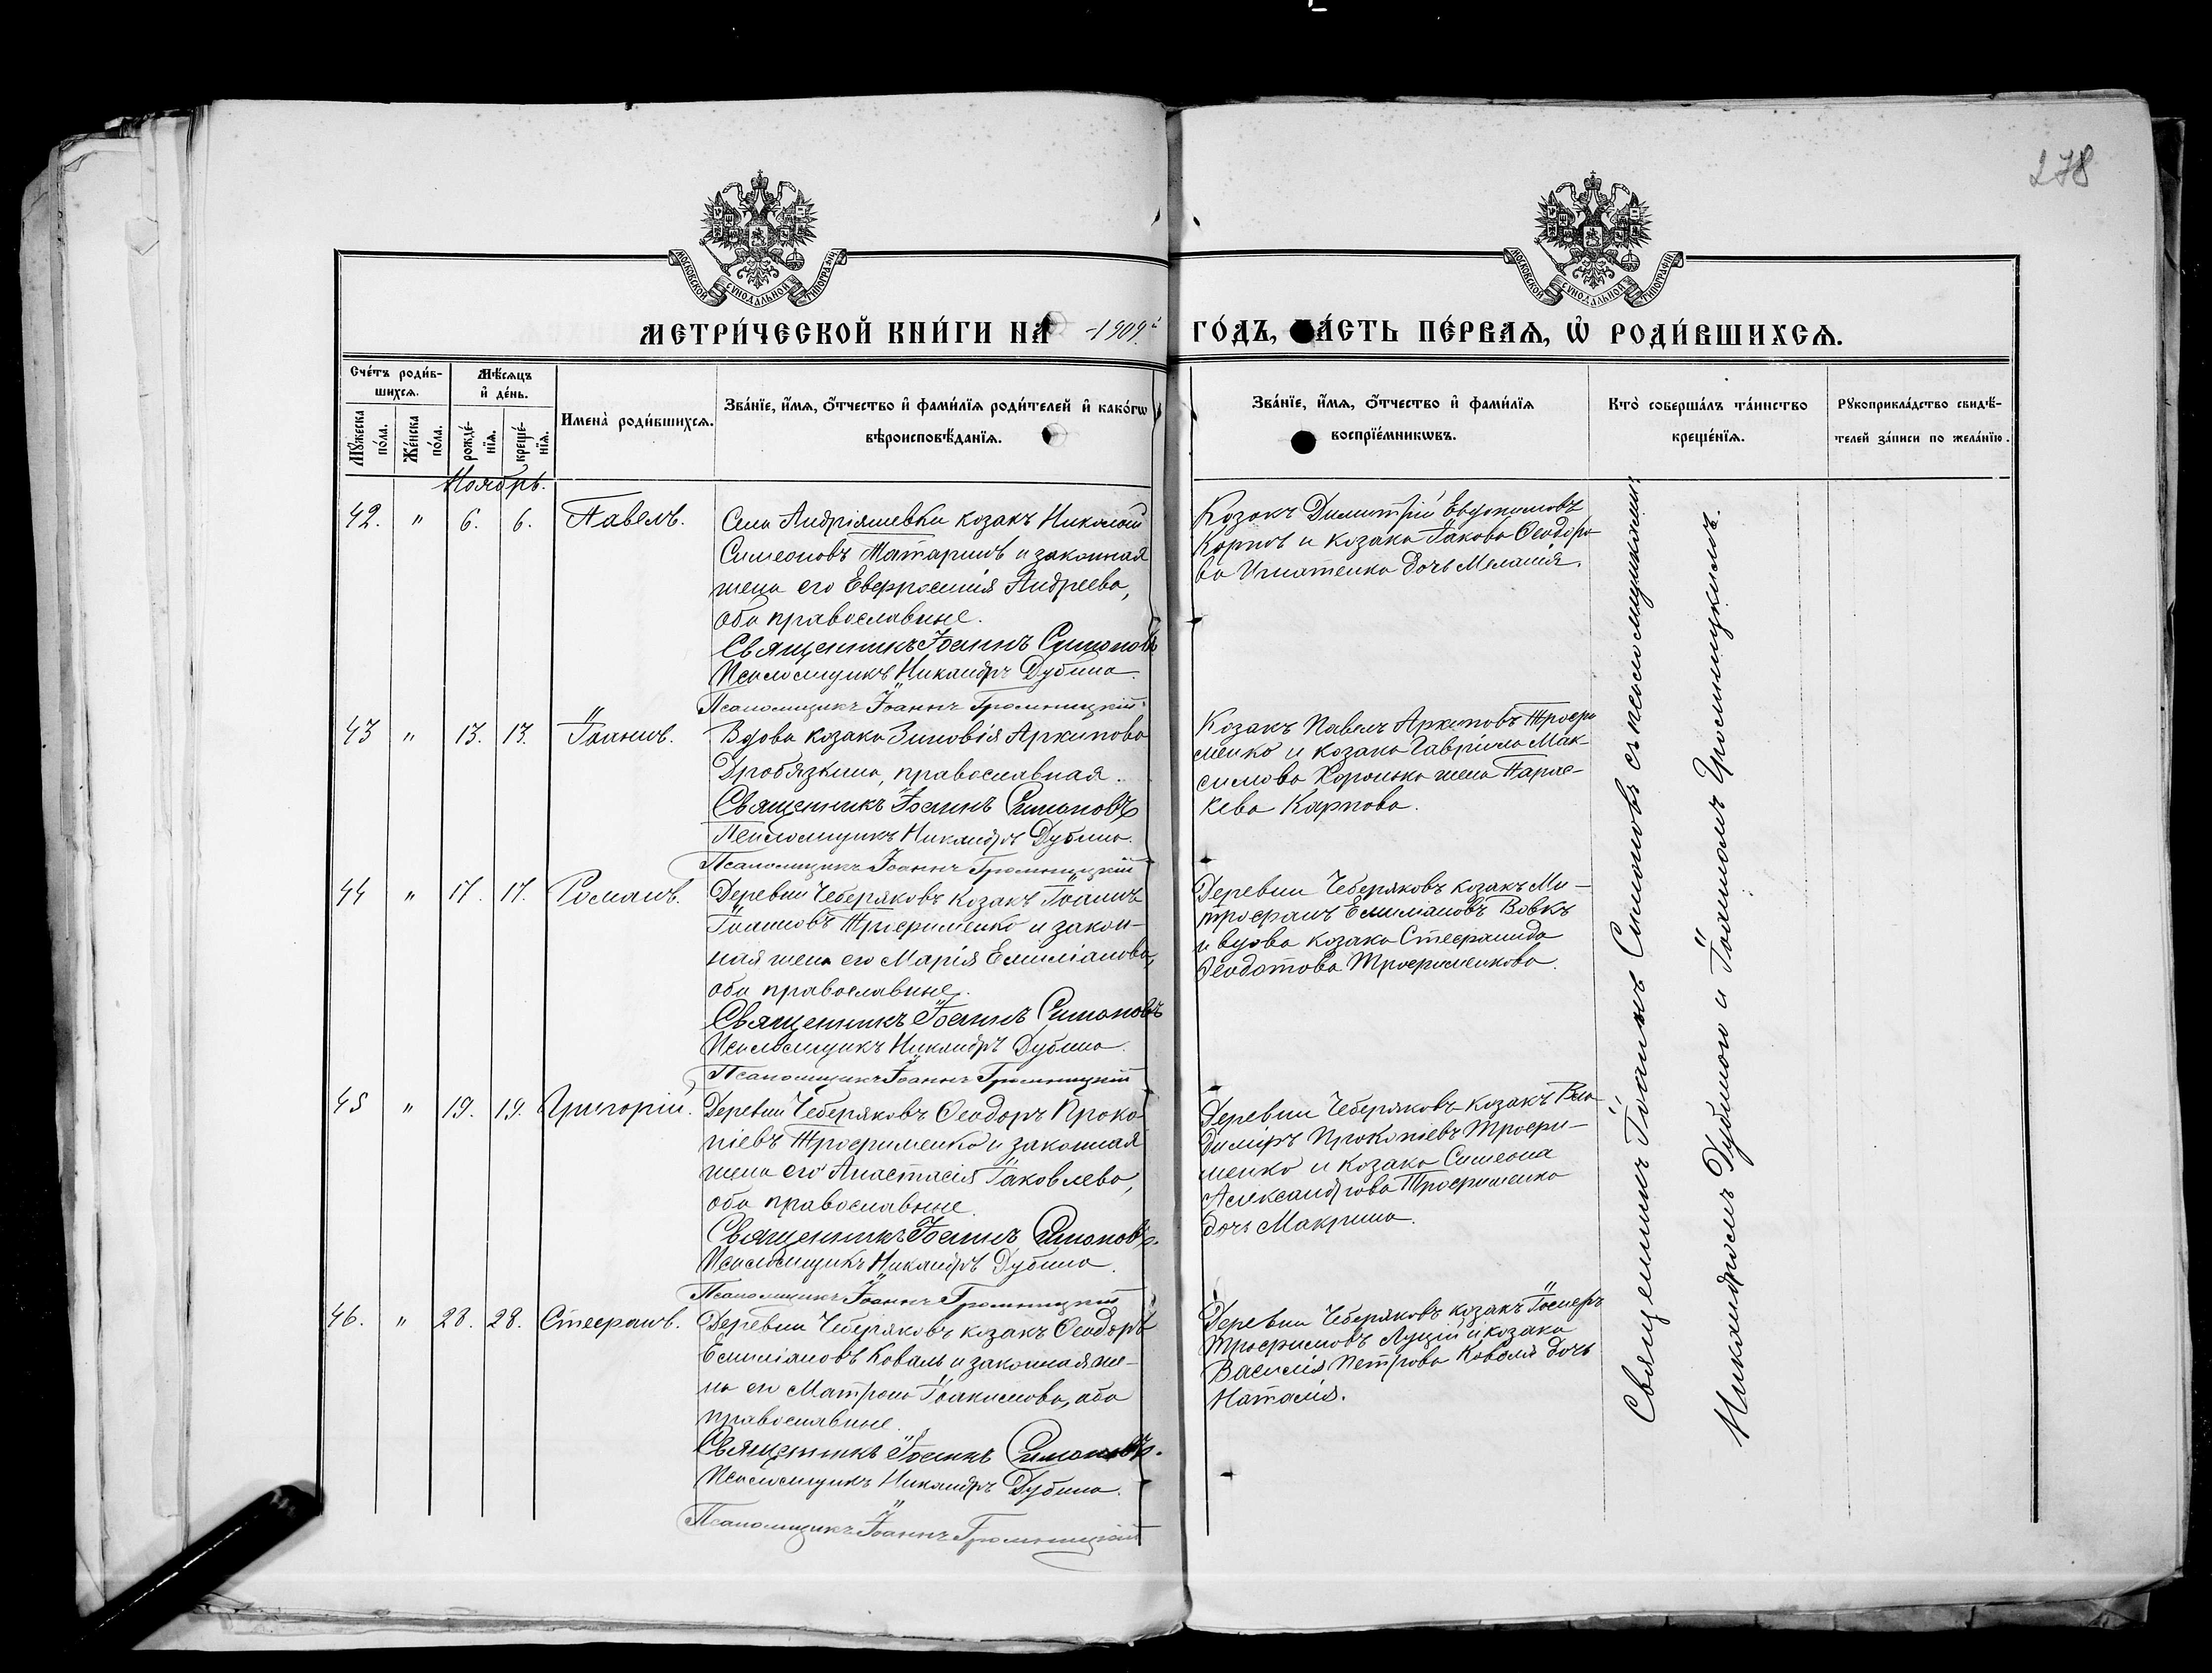 278
МОСКОВСКОЙ СѴНОДАЛЬНОЙ ТИПОГРАФІИ
МОСКОВСКОЙ СѴНОДАЛЬНОЙ ТИПОГРАФІИ
МЕТРИ́ЧЕСКОЙ КНИ́ГИ НА -1909.й ГО́ДЪ, ЧА́СТЬ ПЕ́РВАѦ, Ѡ҆ РОДИ́ВШИХСѦ.
Сче́тъ роди́в-
шихсѧ.
Мꙋ́жеска по́ла.
Же́нска по́ла.
Мѣ́сѧцъ
и҆ де́нь.
рожде́-нїѧ.
креще́-нїѧ.
Имена̀ роди́вшихсѧ.
Зва́нїе, и҆́мѧ, ѻ҆́тчество и҆ фами́лїѧ роди́телей и҆ како́гѡ
вѣроисповѣ́данїѧ.
Зва́нїе, и҆́мѧ, ѻ҆́тчество и҆ фами́лїѧ
воспрїе́мникѡвъ.
Кто̀ соверша́лъ та́инство
креще́нїѧ.
Рꙋкоприкла́дство свидѣ́-
телей за́писи по жела́нїю.
Ноябрь.
42. " 6. 6. Павелъ.
Села Андріяшевки козакъ Николай
Симеоновъ Матаринъ и законная
жена его Евфросинія Андреева,
оба православные.
Священникъ Іоаннъ Симоновъ
Псаломщикъ Никандръ Дубина.
Псаломщикъ Іоаннъ Громницкій.
Козакъ Димитрій Евдокимовъ
и козака Іакова Ѳеодоро-
ва Игнатенка дочь Меланія.
43 " 13. 13. Іоаннъ.
Вдова козака Зиновія Архипова
Дробязкина, православная.
Священникъ Іоаннъ Симоновъ
Псаломщикъ Никандръ Дубина.
Псаломщикъ Іоаннъ Громницкій
Козакъ Павелъ Архиповъ Трофи
менко и козака Гавріила Мак-
симова Хоронька жена Парас-
кева Карпова.
44 " 17. 17. Романъ.
Деревни Чеберяковъ козакъ Іоаннъ
Іоанновъ Трофименко и закон-
ная жена его Марія Емиліанова,
оба православные.
Священникъ Іоаннъ Симоновъ
Псаломщикъ Никандръ Дубина.
Псаломщикъ Іоаннъ Громницкій
Деревни Чеберяковъ козакъ Ми-
трофанъ Емиліановъ Вовкъ
и вдова козака Стефанида
Ѳеодотова Трофименкова.
45 " 19. 19. Григорій.
Деревни Чеберяковъ Ѳеодоръ Проко
піевъ Трофименко и законная
жена его Анастасія Іаковлева,
оба православные.
Священникъ Іоаннъ Симоновъ.
Псаломщикъ Никандръ Дубина.
Псаломщикъ Іоаннъ Громницкій
Деревни Чеберяковъ козакъ Вла
диміръ Прокопіевъ Трофи-
менко и козака Симеона
Александрова Трофименка
дочь Макрина.
46. " 28. 28. Стефанъ.
Деревни Чеберяковъ козакъ Ѳеодоръ
Емиліановъ Коваль и законная же-
на его Матрона Іоакимова, оба
православные.
Священникъ Іоаннъ Симоновъ.
Псаломщикъ Никандръ Дубина.
Псаломщикъ Іоаннъ Громницкій
Деревни Чеберяковъ козакъ Іосифъ
Трофимовъ Луцій и козака
Василія Петрова Коваля дочь
Наталія.
Священникъ Іоаннъ Симоновъ съ псаломщиками:
Никандромъ Дубиною и Іоанномъ Громницкимъ.